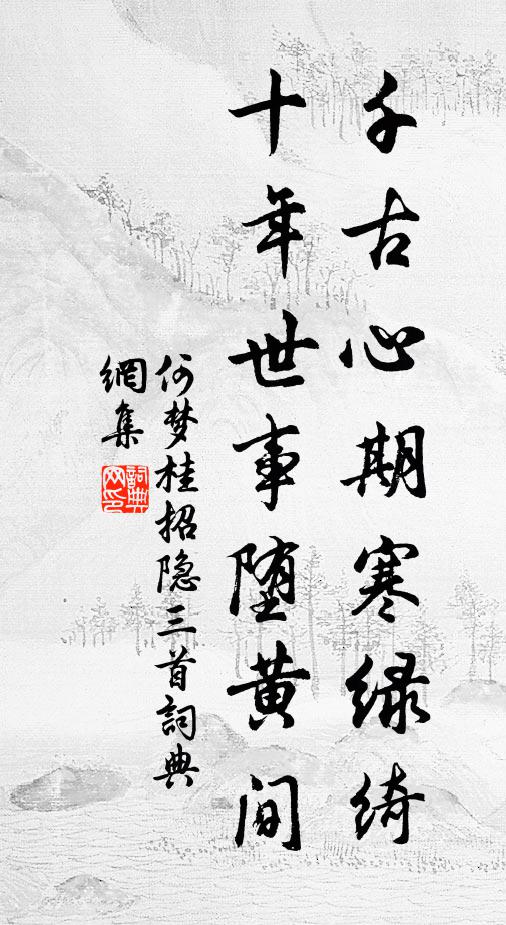 千古心期寒绿绮
十年世事堕黄间
何梦桂招隐三首詞典
網集
詞典网印